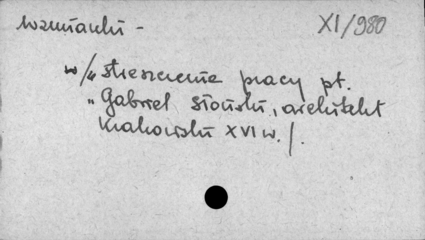 Wzmianki - XI/980
w /„ streszczenie pracy pt.
„Gabriel Słoński, architekt
krakowski XVI w./.